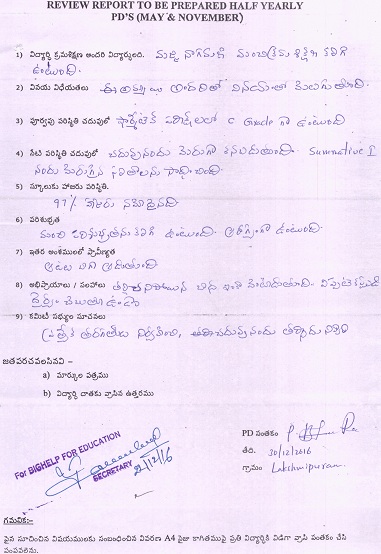 REVIEW REPORT TO BE PREPARED HALF YEARLY
PD'S (MAY & NOVEMBER)
1) విద్యార్థి క్రమశిక్షణ అందరి విద్యార్థులది. మద్ది నాగమణి మంచి క్రమ శిక్షణ కలిగి
ఉంటుంది.
2) వినయ విధేయతలు ఈ అమ్మాయి అందరితో వినయంతో మెలుగుతుంది.
3) పూర్వపు పరిస్థితి చదువులో ఫార్మేటివ్ పరీక్షలలో C Grade గా ఉంటుంది
4) నేటి పరిస్థితి చదువులో చదువునందు మెరుగా కనబరుతుంది. Summative I
నందు మెరుగైన ఫలితాలను సాధించింది.
5) స్కూలుకు హాజరు పరిస్థితి.
97% హాజరు నమోదైనది
6) పరిశుభ్రత
మంచి పరిశుభ్రతను కలిగి ఉంటుంది. ఆరోగ్యంగా ఉంటుంది.
7) ఇతర అంశములలో ప్రావీణ్యత
ఆటలు బాగా ఆడుతుంది.
8) అభిప్రాయాలు / సలహాలు
9) కమిటీ సభ్యుల సూచనలు
ప్రత్యేక తరగతులు నిర్వహించి,
జతపరచవలసినవి :-
a) మార్కుల పత్రము
b) విద్యార్థి దాతకు వ్రాసిన ఉత్తరము
For BIGHELP FOR EDUCATION
SECRETARY
21/12/16
PD సంతకం
తేది. 30/12/2016
గ్రామం Lakshmipuram.
గమనిక:-
పైన సూచించిన విషయములకు సంబంధించిన వివరణ A4 సైజు కాగితముపై ప్రతి విద్యార్థికి విడిగా వ్రాసి సంతకం చేసి
పంపవలెను.